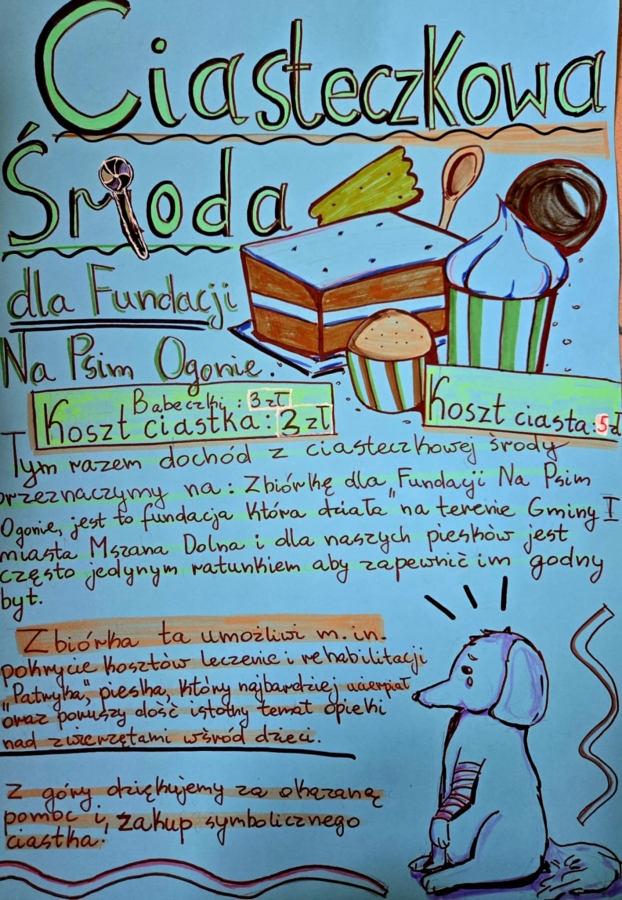 Ciasteczkowa
Środa
dla Fundacji
Na Psim Ogonie.
Babeczki: 3 zł
Koszt ciastka: 2 zł
Koszt ciasta: 5 zł
Tym razem dochód z ciasteczkowej środy
przeznaczymy na: Zbiórkę dla "Fundacji Na Psim
Ogonie, jest to fundacja która działa" na terenie Gminy I
miasta Mszana Dolna i dla naszych piesków jest
często jedynym ratunkiem aby zapewnić im godny
byt.
Zbiórka ta umożliwi m.in.
pokrycie kosztów leczenie i rehabilitacji
"Patryka", pieska, który najbardziej ucierpiał
oraz poruszy dość istotny temat opieki
nad zwierzętami wśród dzieci.
Z góry dziękujemy za okazaną
pomoc i, zakup symbolicznego
ciastka.